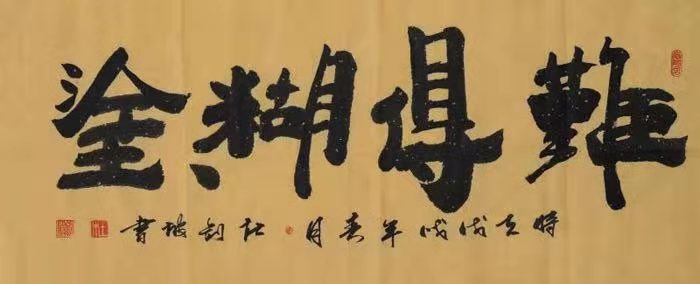 難得糊塗
時在戊戌年春月 杜剑坡書